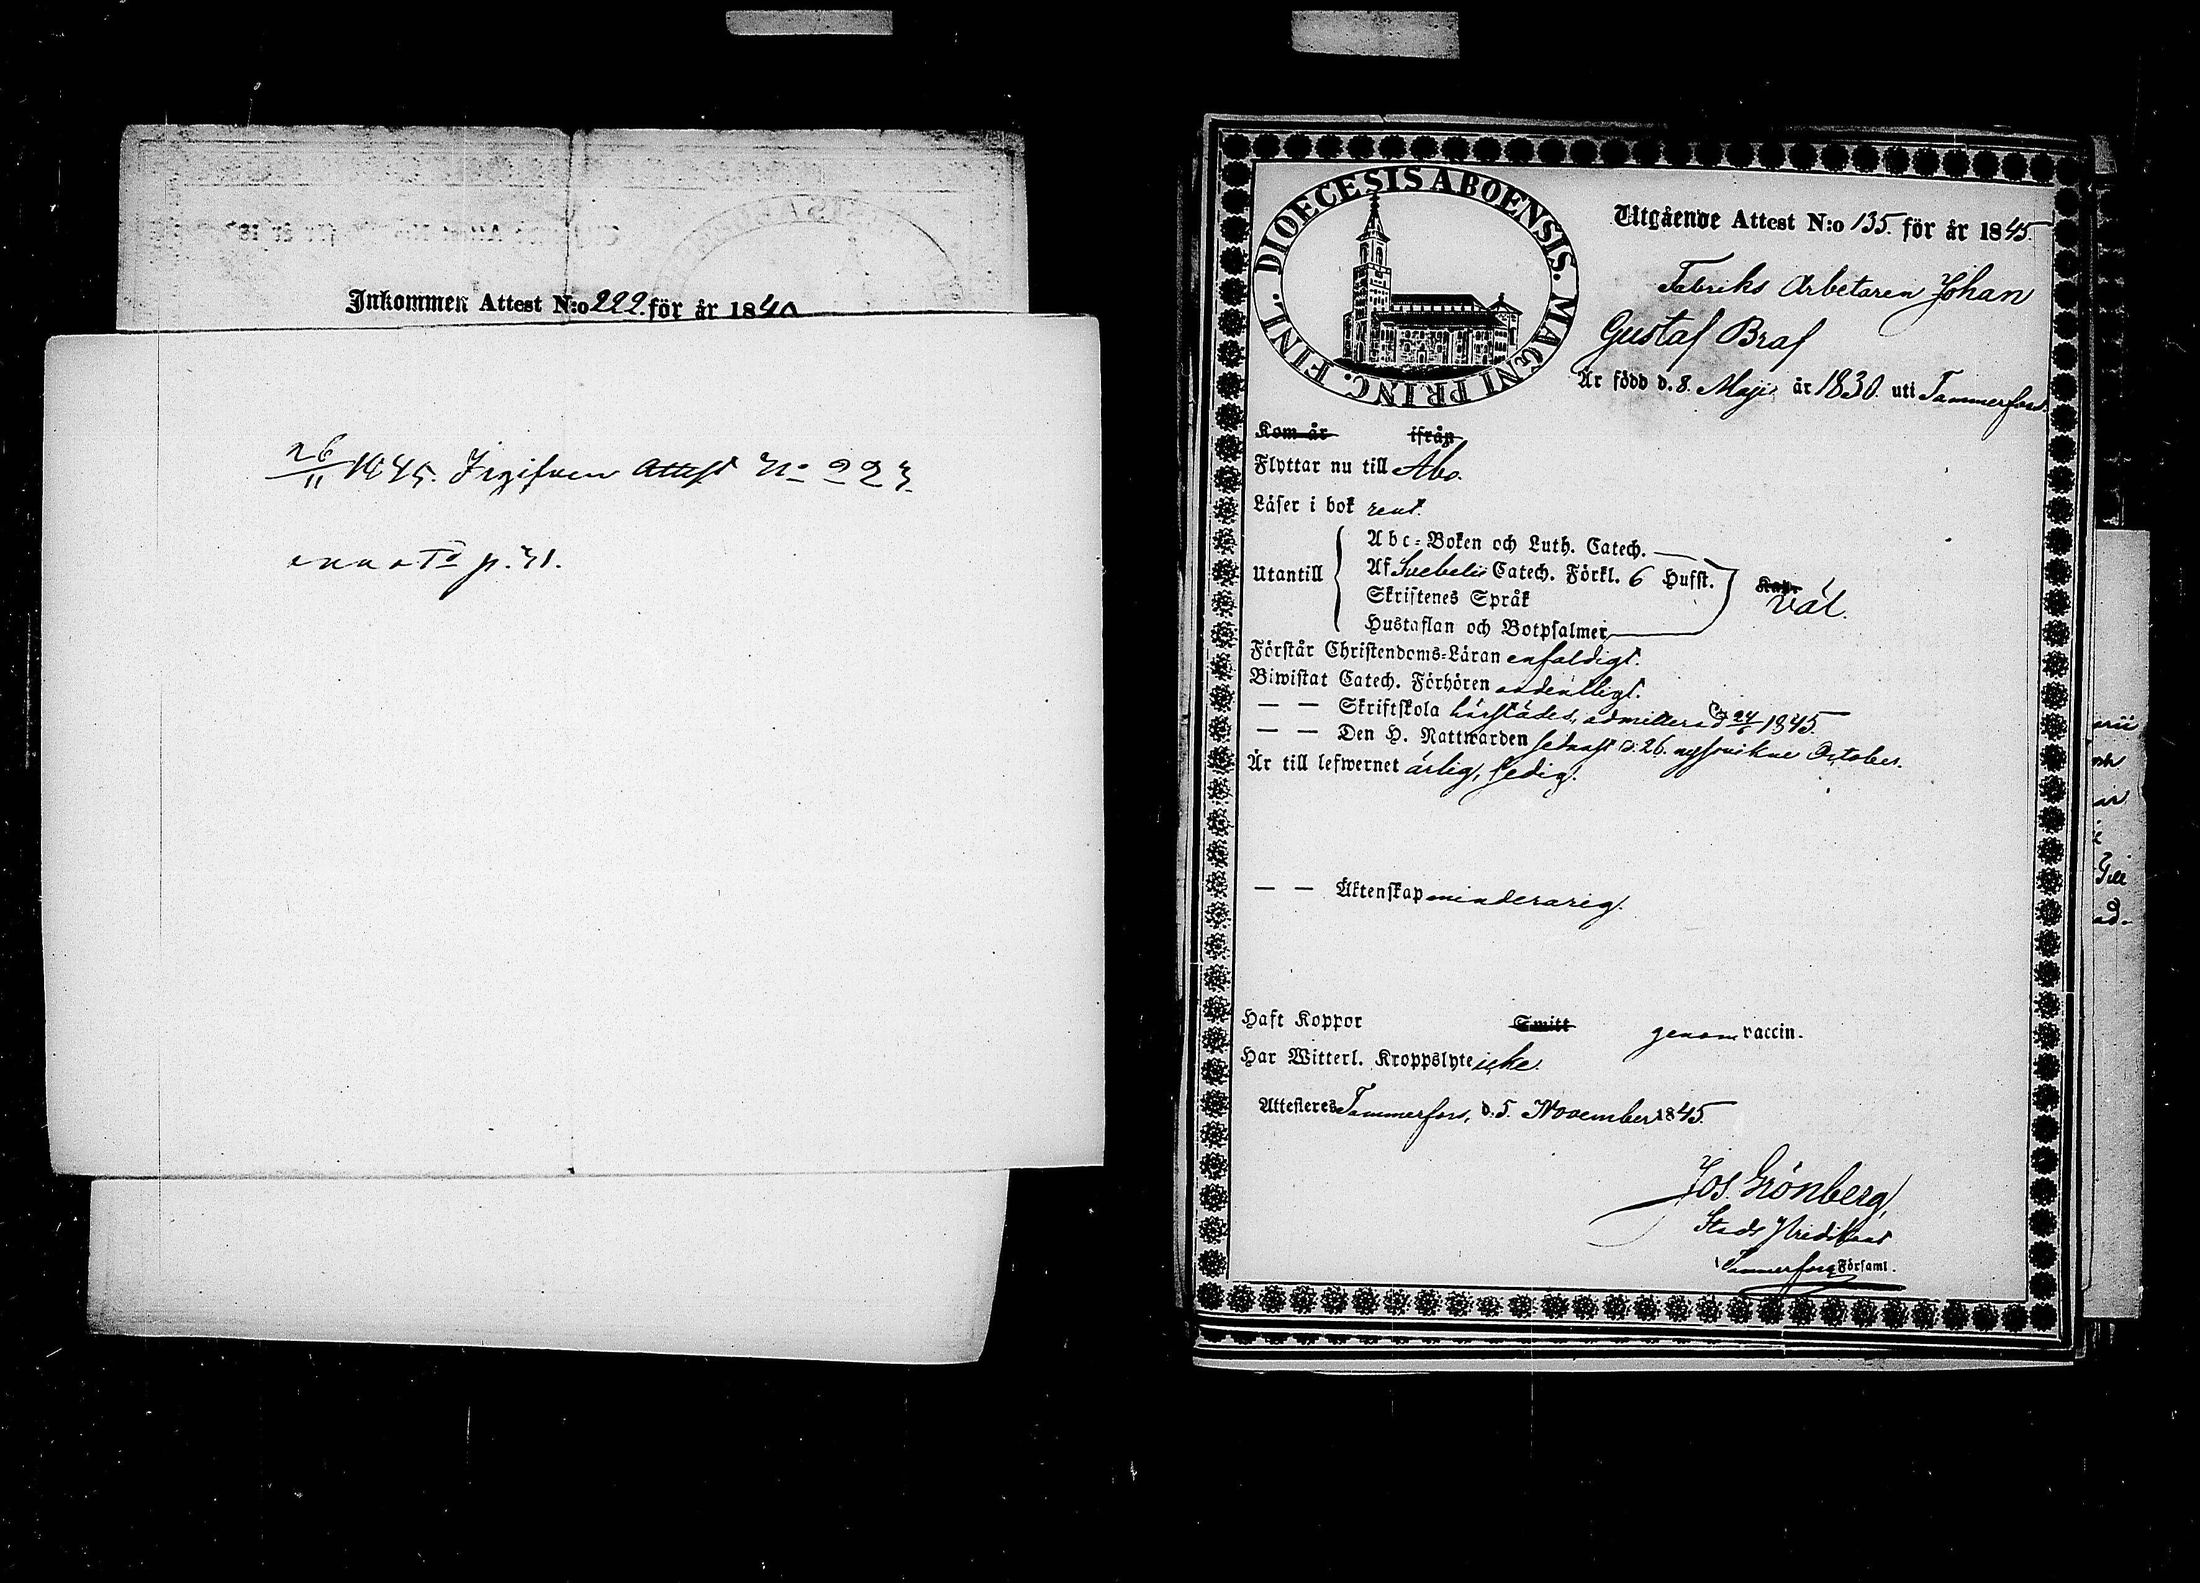 Inkommen Attest N:o 222. för år 1840
26/11 1845. Ingifven Attest No 223
annot. p. 31.
DIOECESIS ABOENSIS. MAGNI PRINC. FINL.
Utgående Attest N:o 135. för år 1845.
Fabriks Arbetaren Johan
Gustaf Braf
Är född d. 8. Maji år 1830. uti Tammerfors.
Kom år ifrån
Flyttar nu till Åbo.
Läser i bok rent.
Utantill
Abc-Boken och Luth. Catech.
Af Svebelii Catech. Förkl. 6 Hufst.
Skriftenes Språk
Hustaflan och Botpsalmer
Väl.
Förstår Christendoms-Läran enfaldigt.
Biwistat Catech. Förhören ordentligt.
— — Skriftskola härstädes, admitterad 24/ 1845.
— — Den H. Nattwarden sednast d. 26. nystvikne October.
Är till lefwernet ärlig, sedig.
— — Äktenskap minderårig.
Haft Koppor Smitt genom vaccin.
Har Witterl. Kroppslyte icke.
Attesteres Tammerfors, d. 5. November 1845.
Jos. Grönberg
Stads Predikant
Tammerfors Församl.
arii
och
ar
Till
ad-